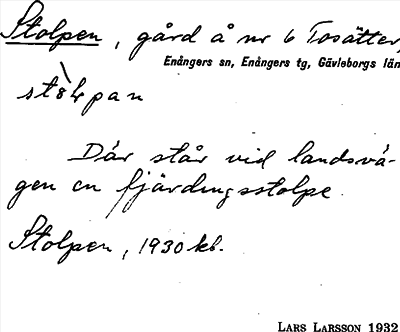 Stolpen, gård å nr 6 Tosätter,
Enångers sn, Enångers tg, Gävleborgs län
Där står vid landsvä-
gen en fjärdingsstolpe.
Stolpen, 1930 kb.
LARS LARSSON 1932